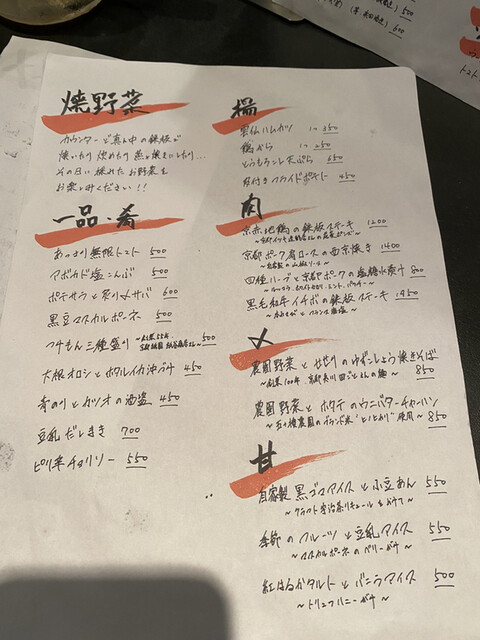 焼野菜
カウンターど真ん中の鉄板で
焼いたり 炊いたり 蒸し焼きにしたり...
その日に採れたお野菜を
お楽しみください!!
一品・肴
あっさり無限トマト 500
アボカド塩こんぶ 500
ポテオラと炙り〆サバ 600
黒豆マスカルポーネ 500
つけもん三種盛り 500
大根オロシとホタルイカ沖づけ 450
青のりとカツオの酒盗 450
豆乳だしまき 700
ピリ辛チョリソー 550
揚
雲仙ハムカツ 1コ 350
鶏から 1コ 250
とうもろこし天ぷら 650
皮付きフライドポテト 450
肉
京赤地鶏の鉄板ステーキ 1200
京都ポーク肩ロースの西京焼き 1400
四種ハーブと京都ポークの塩糖水煮汁 800
黒毛和牛イチボの鉄板ステーキ 1950
〆
農園野菜とせせりのゆずこしょう焼きそば 850
農園野菜とホタテのウニバターチャーハン
850
甘
自家製 黒ゴマアイスと小豆あん 550
～クラフト宇治茶リキュールをかけて～
季節のフルーツと豆乳アイス 550
～マスカルポーネのベリーがけ～
紅はるかタルトとバニラアイス 500
～トリュフハニーがけ～
500
600